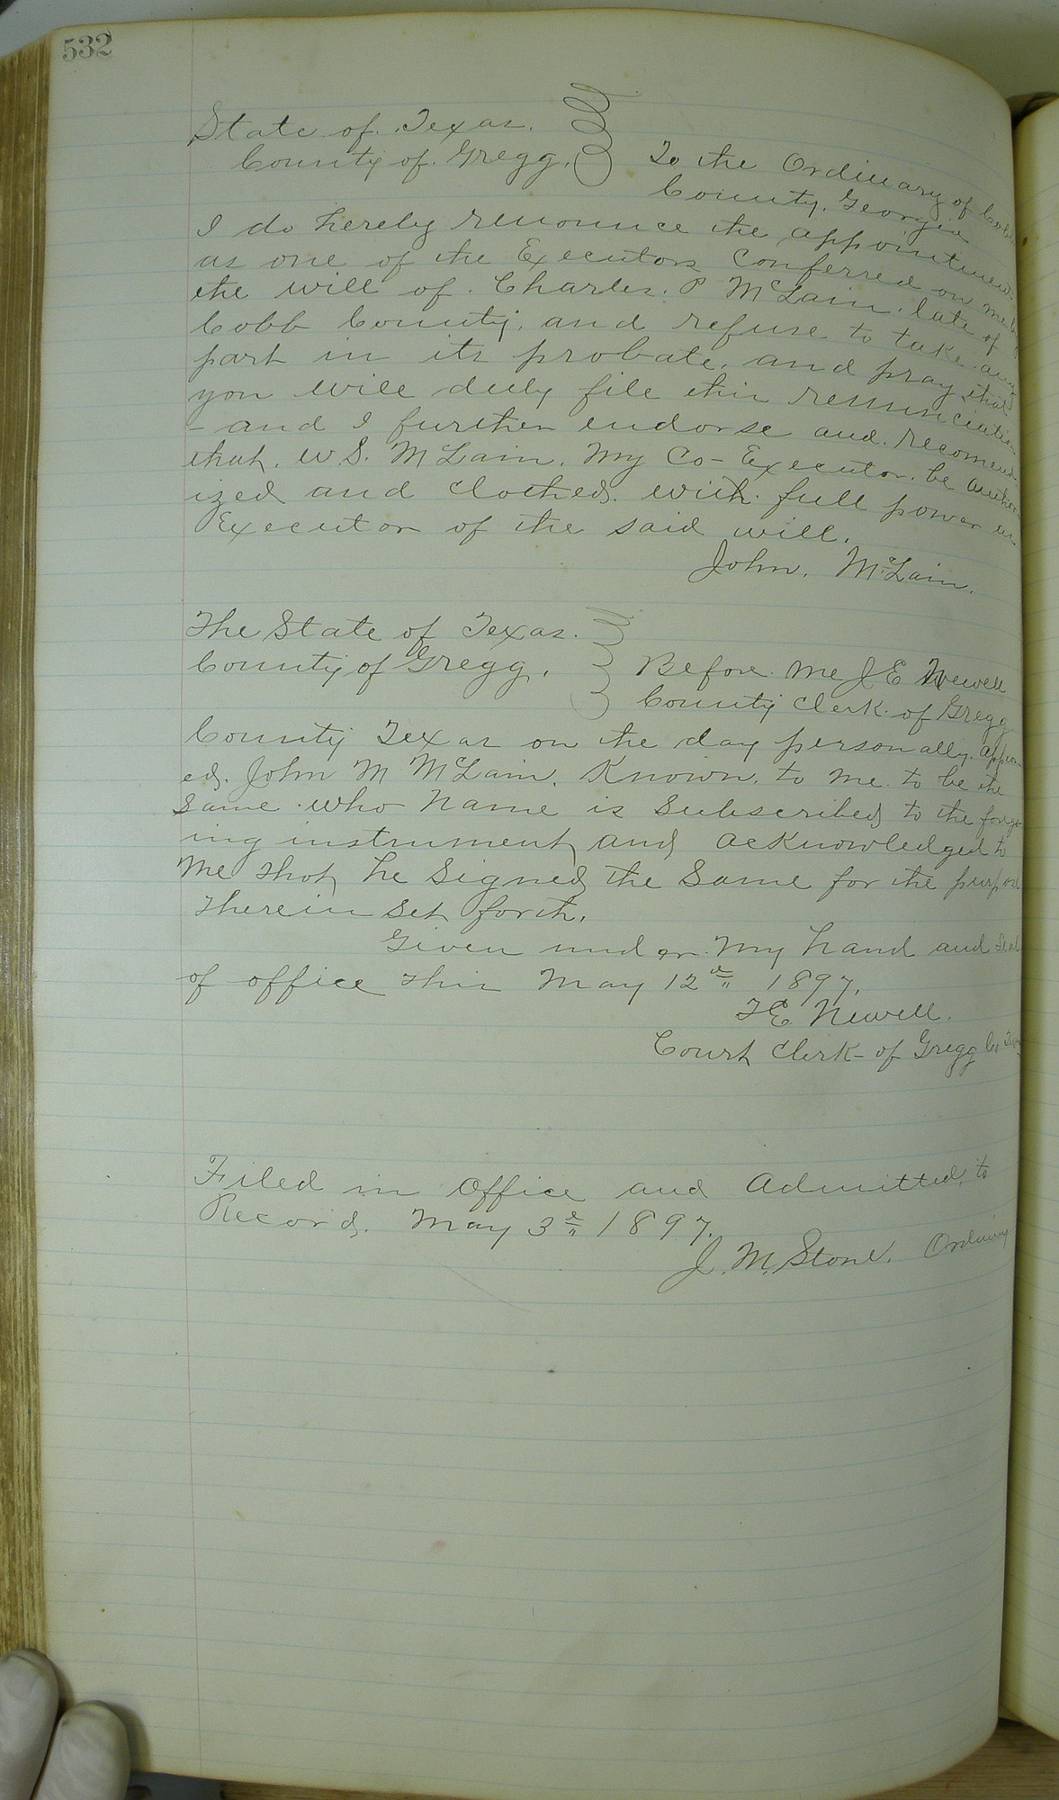 532
State of Texas.
County of Gregg.
To the Ordinary of Cobb
County, Georgia
I do hereby renounce the appointment
as one of the Executors conferred on me by
the will of Charles. P McLain. late of
Cobb County, and refuse to take any
part in its probate, and pray that
you will duly file this renunciation
- and I further endorse and recomend
that. W S. McLain. My Co-Executor. be author
ized and clothed with full power as
Executor of the said will.
John. McLain.
The State of Texas.
County of Gregg.
Before me J E Newell
County Clerk of Gregg
County Texas on the day personally appear
ed, John M McLain. Known, to me to be the
Same who name is Subscribed to the forgo
ing instrument, and acknowledged to
me that, he Signed, the Same for the purpose
therein set forth.
Given under my hand and Seal
of office this May 12th 1897.
J E Newell.
Court Clerk of Gregg Co Tex
Filed in Office and Admitted, to
Record. May 3d 1897.
J. M. Stone. Ordinary